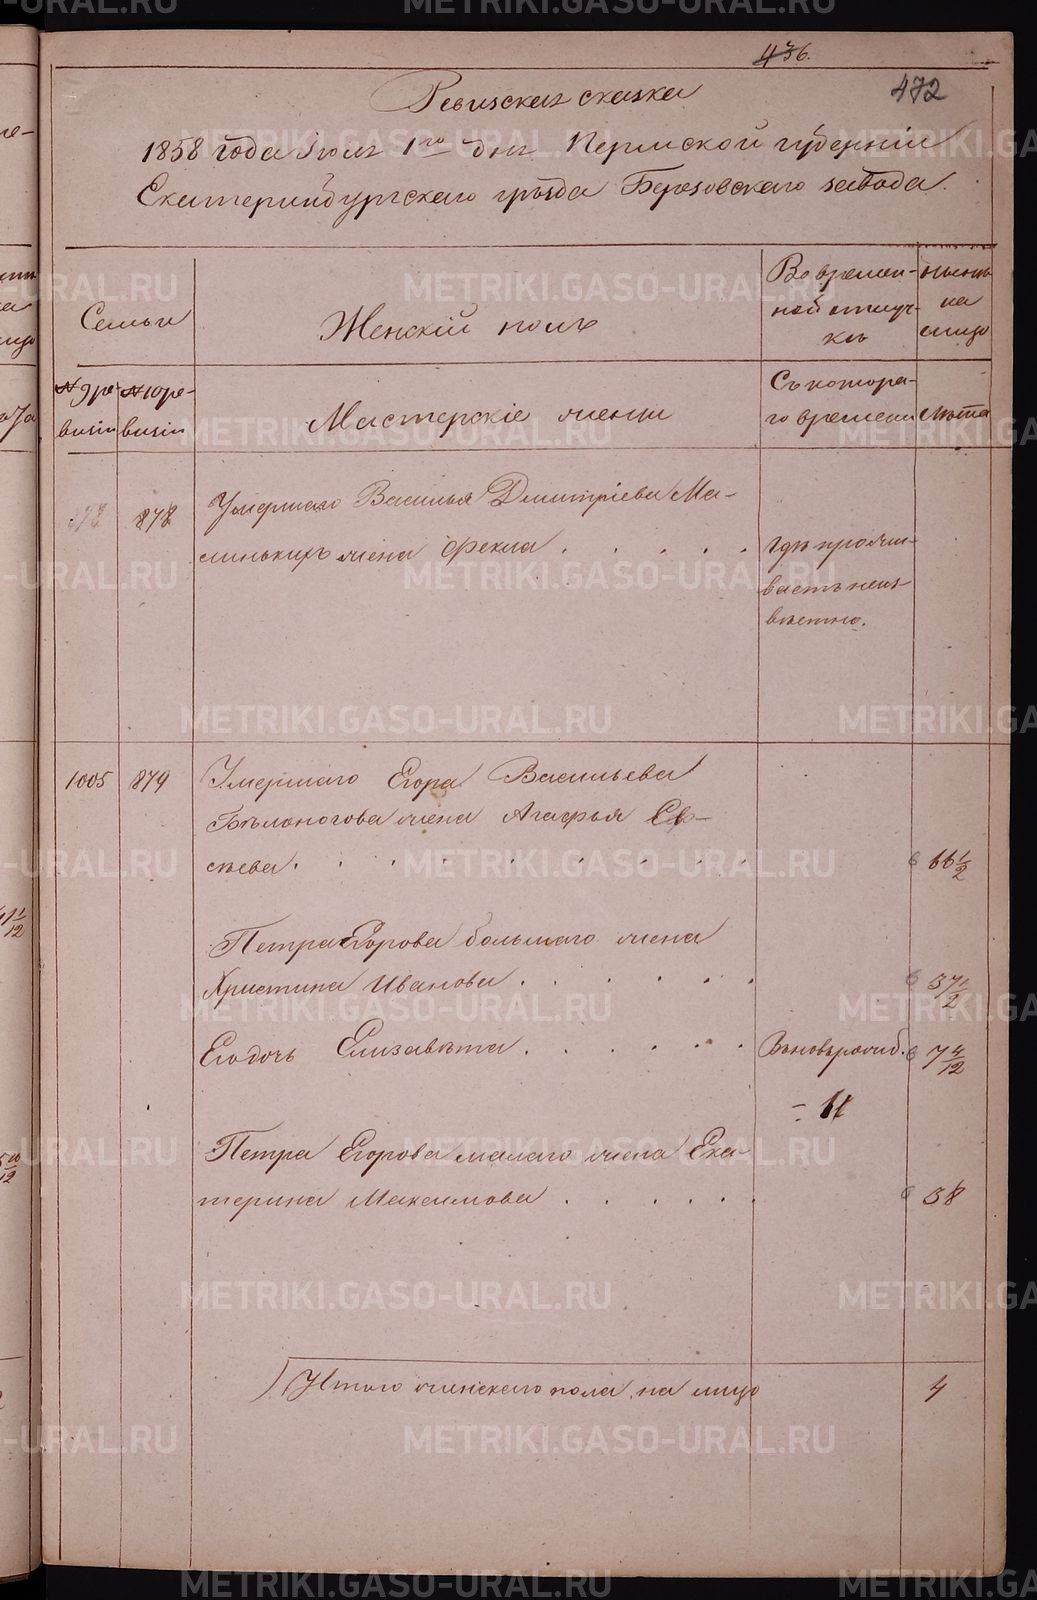 436.
472
Ревизская сказка
1858 года Июля 1го дня Пермской губернии
Екатеринбургского уѣзда Березовского завода.
Семьи
Женскій полъ
Во времен-
ной отлуч-
кѣ
нынѣ
на
лицо
№ 9 ре-
визіи
№ 10 ре-
визіи
Мастерскіе жены
Съ котора-
го времени
Лѣта
878
Умершаго Василья Дмитріева Ма-
линькихъ жена Фекла . . . . .
Гдѣ прожи-
ваетъ неиз
вѣстно.
1005
879
Умершаго Егора Васильева
Бѣлоногова жена Агафья Ев-
сѣева . . . . . . . . .
66 1/2
Петра Егорова большаго жена
Христина Иванова . . . . . .
37 1/2
Его дочь Елизавѣта . . . . . .
7 4/12
Петра Егорова малаго жена Ека-
терина Максимова . . . . . .
38
Итого женскаго пола на лицо
4
METRIKI.GASO-URAL.RU